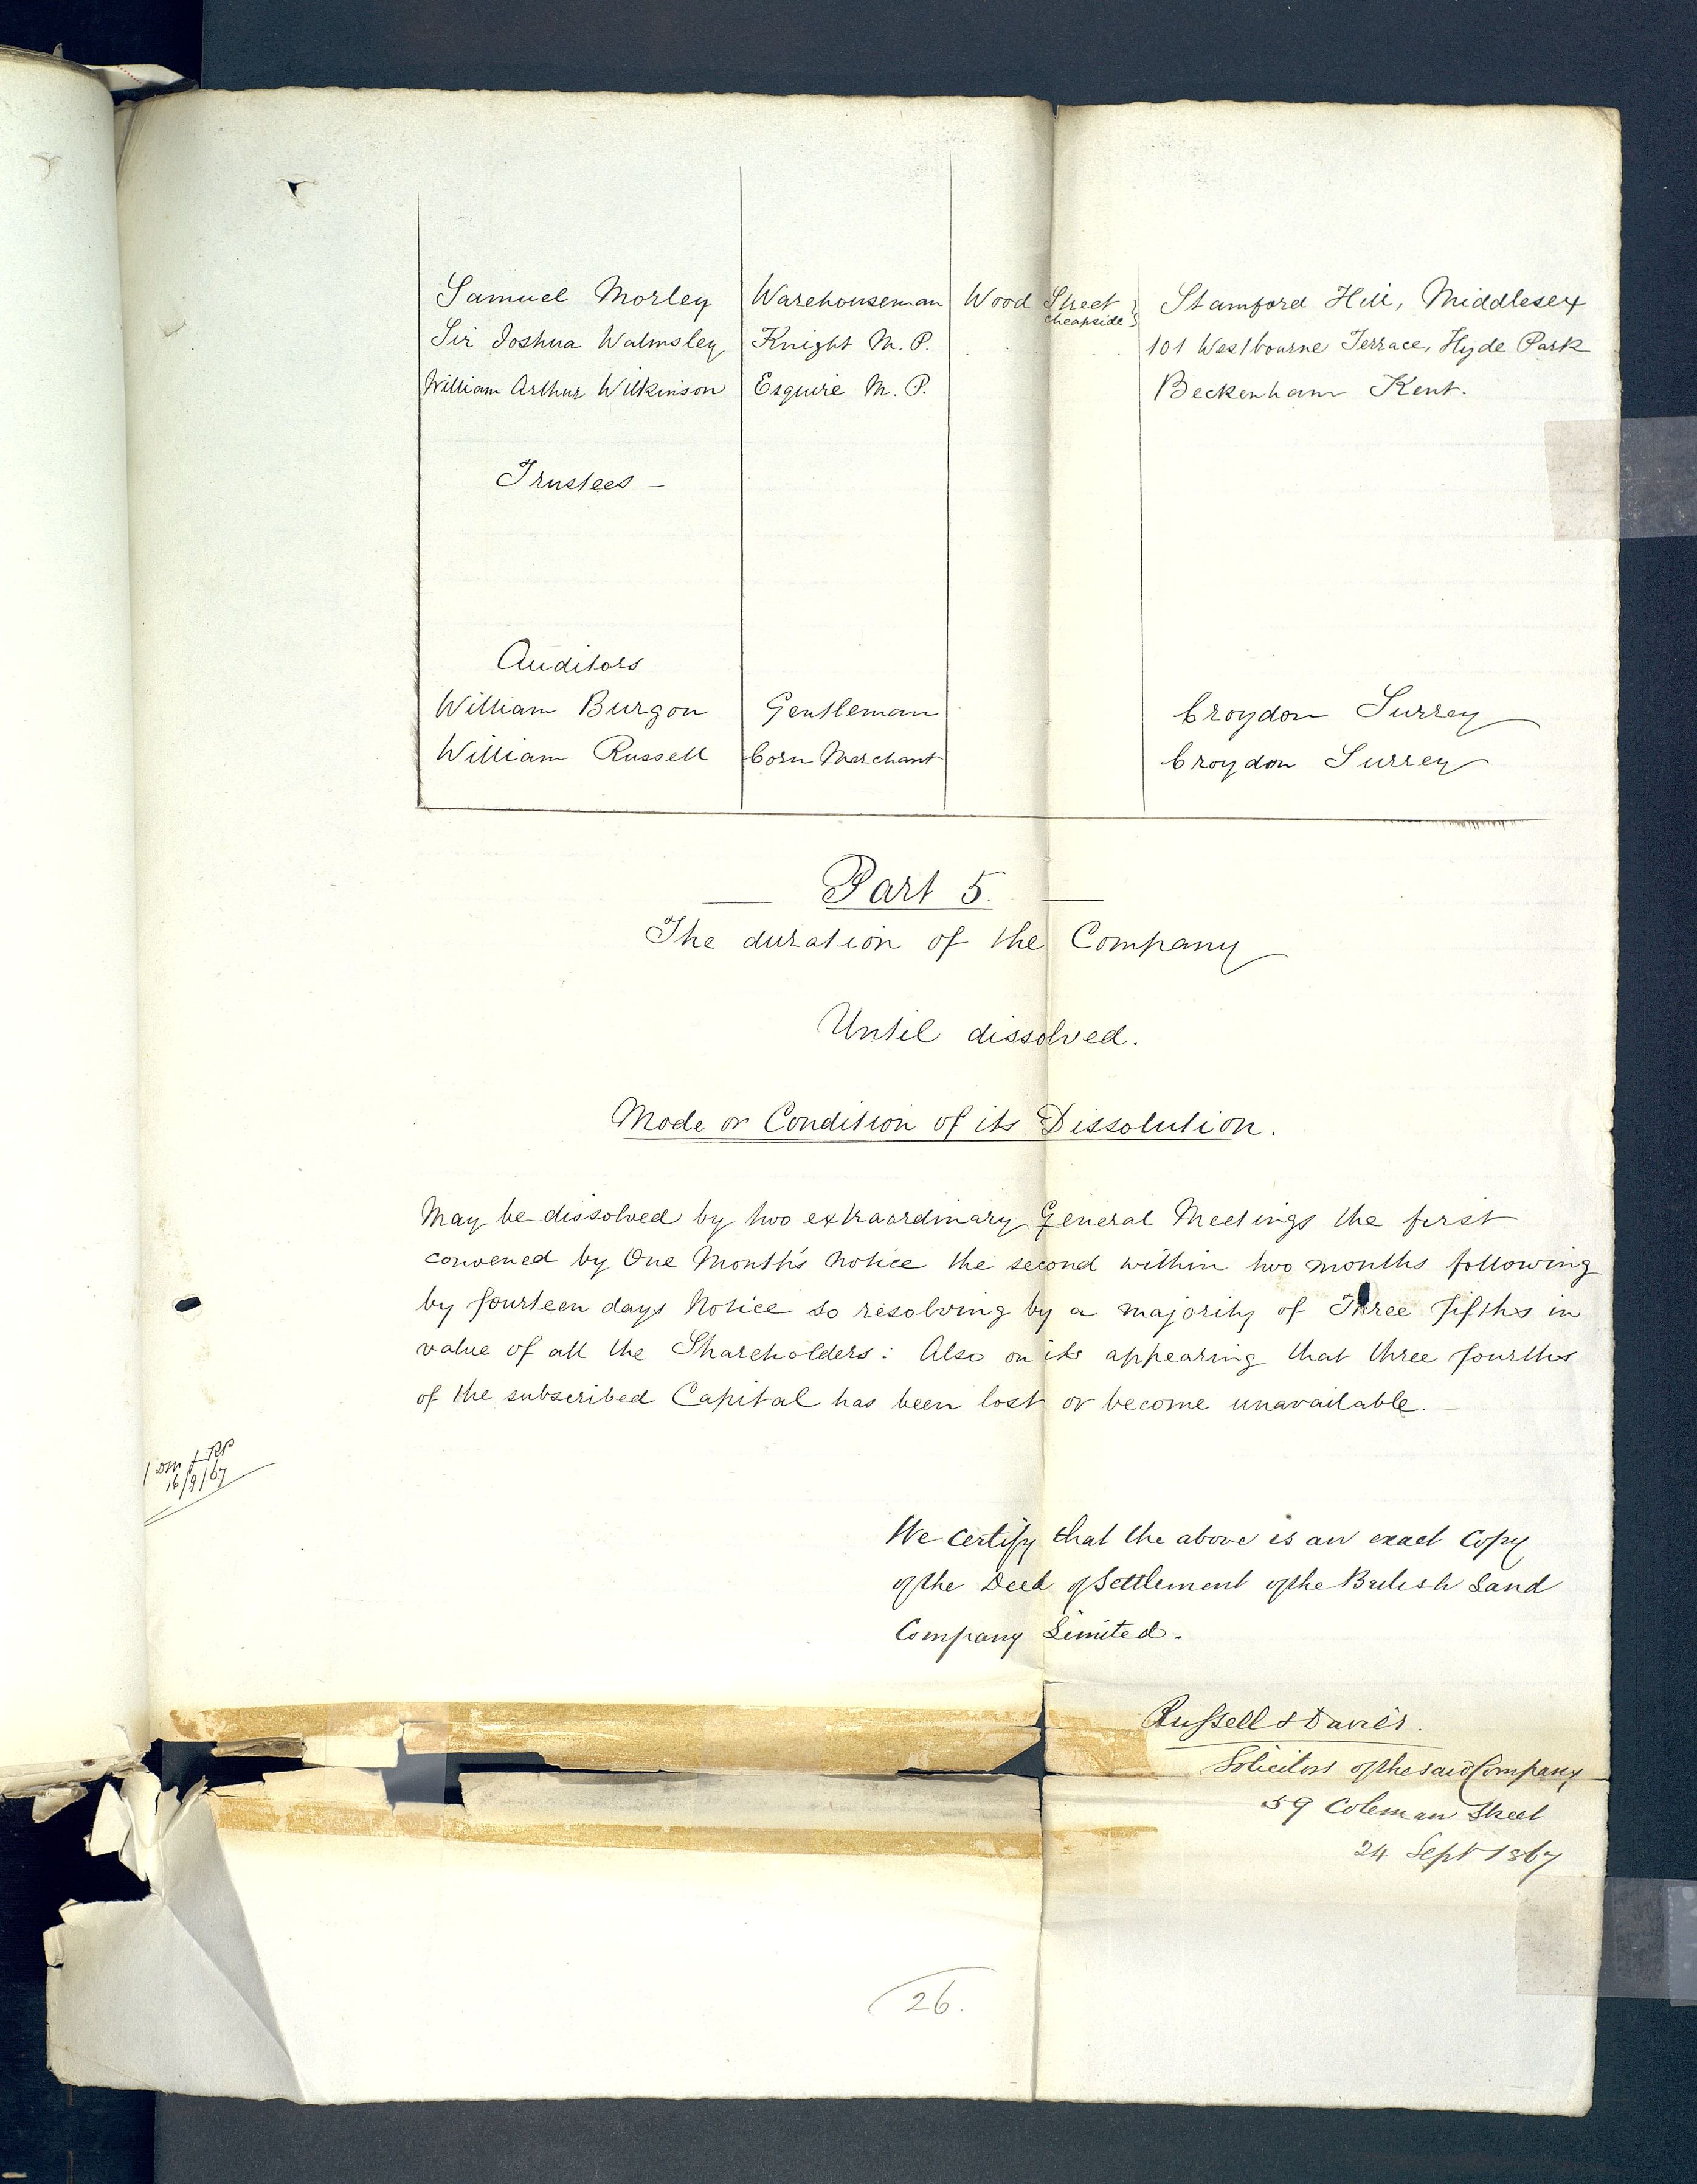 Samuel Morley Warehouseman Wood Street Cheapside } Stamford Hill, Middlesex
Sir Joshua Walmsley Knight M.P. 101 Westbourne Terrace, Hyde Park
William Arthur Wilkinson Esquire M.P. Beckenham Kent.
Trustees -
Auditors
William Burgon Gentleman Croydon Surrey
William Russell Corn Merchant Croydon Surrey
Part 5.
The duration of the Company
Until dissolved.
Mode or Condition of its Dissolution.
May be dissolved by two extraordinary General Meetings the first
convened by One Month's notice the second within two months following
by fourteen days Notice so resolving by a majority of Three fifths in
value of all the Shareholders: Also on its appearing that three fourths
of the subscribed Capital has been lost or become unavailable.
16/9/67
We certify that the above is an exact Copy
of the Deed of Settlement of the British Land
Company Limited.
Russell & Davies.
Solicitors of the said Company
59 Coleman Street
24 Sept 1867
26.